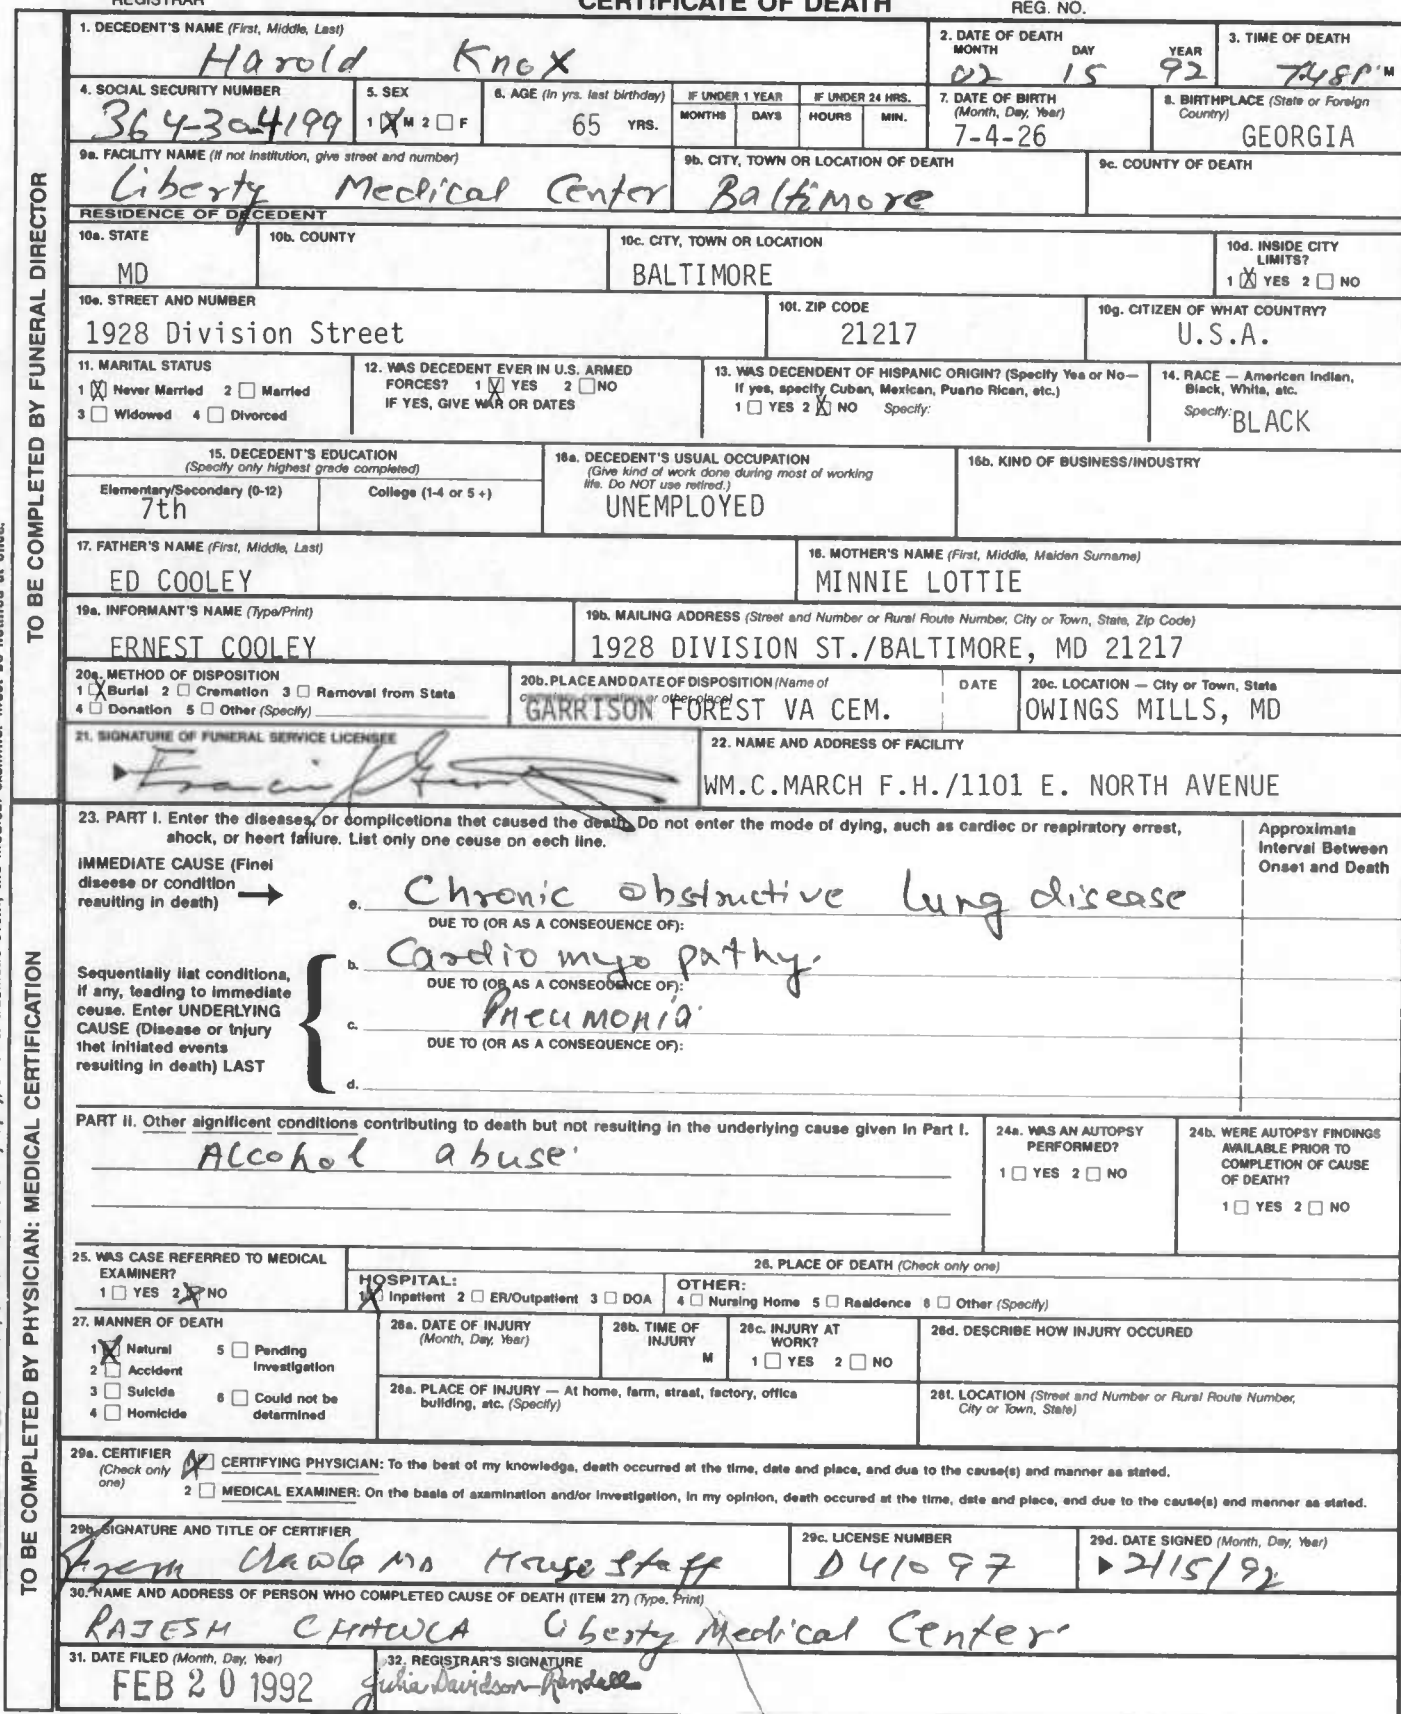 REGISTRAR
CERTIFICATE OF DEATH
REG. NO.
1. DECEDENT'S NAME (First, Middle, Last)
Harold Knox
2. DATE OF DEATH
MONTH DAY YEAR
02 15 92
3. TIME OF DEATH
7:48P M
4. SOCIAL SECURITY NUMBER
364-30-4199
5. SEX
1 X M 2 ☐ F
6. AGE (In yrs. last birthday)
65 YRS.
IF UNDER 1 YEAR
MONTHS DAYS
IF UNDER 24 HRS.
HOURS MIN.
7. DATE OF BIRTH
(Month, Day, Year)
7-4-26
8. BIRTHPLACE (State or Foreign
Country)
GEORGIA
9a. FACILITY NAME (If not institution, give street and number)
Liberty Medical Center
9b. CITY, TOWN OR LOCATION OF DEATH
Baltimore
9c. COUNTY OF DEATH
RESIDENCE OF DECEDENT
10a. STATE
MD
10b. COUNTY
10c. CITY, TOWN OR LOCATION
BALTIMORE
10d. INSIDE CITY
LIMITS?
1 X YES 2 ☐ NO
10e. STREET AND NUMBER
1928 Division Street
10f. ZIP CODE
21217
10g. CITIZEN OF WHAT COUNTRY?
U.S.A.
11. MARITAL STATUS
1 X Never Married 2 ☐ Married
3 ☐ Widowed 4 ☐ Divorced
12. WAS DECEDENT EVER IN U.S. ARMED
FORCES? 1 X YES 2 ☐ NO
IF YES, GIVE WAR OR DATES
13. WAS DECENDENT OF HISPANIC ORIGIN? (Specify Yes or No—
If yes, specify Cuban, Mexican, Puerto Rican, etc.)
1 ☐ YES 2 X NO Specify:
14. RACE — American Indian,
Black, White, etc.
Specify: BLACK
15. DECEDENT'S EDUCATION
(Specify only highest grade completed)
Elementary/Secondary (0-12) College (1-4 or 5 +)
7th
16a. DECEDENT'S USUAL OCCUPATION
(Give kind of work done during most of working
life. Do NOT use retired.)
UNEMPLOYED
16b. KIND OF BUSINESS/INDUSTRY
17. FATHER'S NAME (First, Middle, Last)
ED COOLEY
18. MOTHER'S NAME (First, Middle, Maiden Surname)
MINNIE LOTTIE
19a. INFORMANT'S NAME (Type/Print)
ERNEST COOLEY
19b. MAILING ADDRESS (Street and Number or Rural Route Number, City or Town, State, Zip Code)
1928 DIVISION ST./BALTIMORE, MD 21217
20a. METHOD OF DISPOSITION
1 X Burial 2 ☐ Cremation 3 ☐ Removal from State
4 ☐ Donation 5 ☐ Other (Specify)
20b. PLACE AND DATE OF DISPOSITION (Name of
cemetery, crematory or other place)
GARRISON FOREST VA CEM.
DATE
20c. LOCATION — City or Town, State
OWINGS MILLS, MD
21. SIGNATURE OF FUNERAL SERVICE LICENSEE
22. NAME AND ADDRESS OF FACILITY
WM.C.MARCH F.H./1101 E. NORTH AVENUE
TO BE COMPLETED BY FUNERAL DIRECTOR
23. PART I. Enter the diseases, or complications that caused the death. Do not enter the mode of dying, such as cardiac or respiratory arrest,
shock, or heart failure. List only one cause on each line.
Approximate
Interval Between
Onset and Death
IMMEDIATE CAUSE (Final
disease or condition
resulting in death)
a. Chronic obstructive lung disease
DUE TO (OR AS A CONSEQUENCE OF):
Sequentially list conditions,
if any, leading to immediate
cause. Enter UNDERLYING
CAUSE (Disease or injury
that initiated events
resulting in death) LAST
b. Cardiomyopathy.
DUE TO (OR AS A CONSEQUENCE OF):
c. Pneumonia
DUE TO (OR AS A CONSEQUENCE OF):
d.
PART II. Other significant conditions contributing to death but not resulting in the underlying cause given in Part I.
Alcohol abuse
24a. WAS AN AUTOPSY
PERFORMED?
1 ☐ YES 2 ☐ NO
24b. WERE AUTOPSY FINDINGS
AVAILABLE PRIOR TO
COMPLETION OF CAUSE
OF DEATH?
1 ☐ YES 2 ☐ NO
25. WAS CASE REFERRED TO MEDICAL
EXAMINER?
1 ☐ YES 2 X NO
26. PLACE OF DEATH (Check only one)
HOSPITAL:
1 X Inpatient 2 ☐ ER/Outpatient 3 ☐ DOA
OTHER:
4 ☐ Nursing Home 5 ☐ Residence 6 ☐ Other (Specify)
27. MANNER OF DEATH
1 X Natural 5 ☐ Pending
2 ☐ Accident Investigation
3 ☐ Suicide 6 ☐ Could not be
4 ☐ Homicide determined
28a. DATE OF INJURY
(Month, Day, Year)
28b. TIME OF
INJURY
M
28c. INJURY AT
WORK?
1 ☐ YES 2 ☐ NO
28d. DESCRIBE HOW INJURY OCCURED
28e. PLACE OF INJURY — At home, farm, street, factory, office
building, etc. (Specify)
28f. LOCATION (Street and Number or Rural Route Number,
City or Town, State)
29a. CERTIFIER
(Check only
one)
X CERTIFYING PHYSICIAN: To the best of my knowledge, death occurred at the time, date and place, and due to the cause(s) and manner as stated.
2 ☐ MEDICAL EXAMINER: On the basis of examination and/or investigation, in my opinion, death occured at the time, date and place, and due to the cause(s) and manner as stated.
29b. SIGNATURE AND TITLE OF CERTIFIER
Chawla MD House Staff
29c. LICENSE NUMBER
D41097
29d. DATE SIGNED (Month, Day, Year)
2/15/92
30. NAME AND ADDRESS OF PERSON WHO COMPLETED CAUSE OF DEATH (ITEM 27) (Type, Print)
RAJESH CHAWLA Liberty Medical Center
31. DATE FILED (Month, Day, Year)
FEB 20 1992
32. REGISTRAR'S SIGNATURE
Julia Davidson-Randall
TO BE COMPLETED BY PHYSICIAN: MEDICAL CERTIFICATION